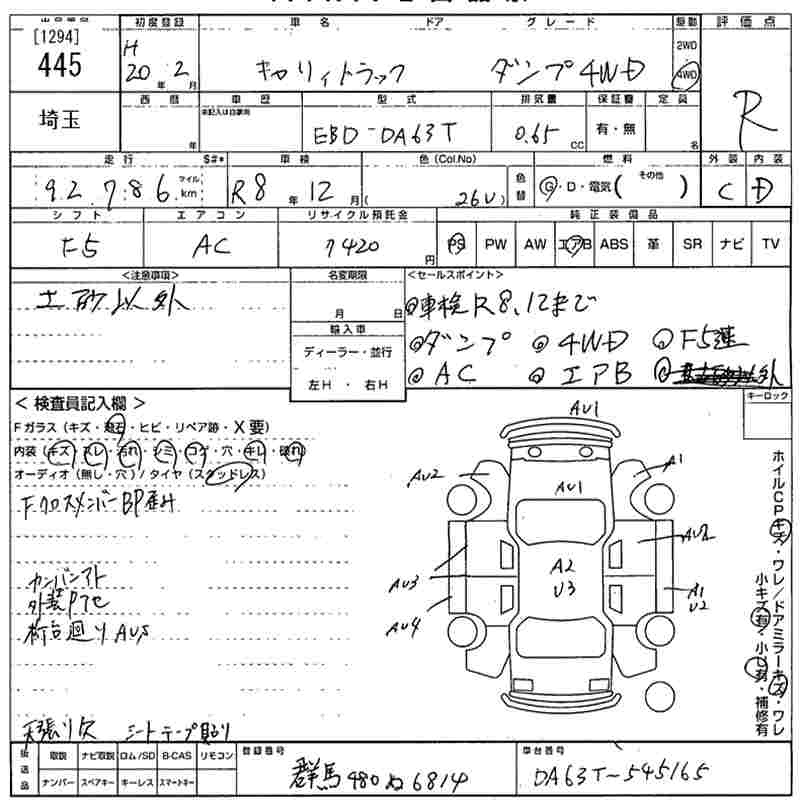 [1294]
445
埼玉
初度登録
H
20 年 2 月
車名 ドア グレード
キャリイトラック ダンプ4WD
駆動
2WD
4WD
評価点
R
西暦
年
車歴
未記入は自家用
型式
EBD-DA63T
排気量
0.65 CC
保証書
有・無
定員
名
走行
92,786
マイル
km
S#*
車検
R8 年 12 月
色(Col.No)
( 26U )
色替
燃料
G・D・電気( その他 )
外装
C
内装
D
シフト
F5
エアコン
AC
リサイクル預託金
7420 円
純正装備品
PS PW AW エアB ABS 革 SR ナビ TV
<注意事項>
土砂以外
名変期限
月 日
輸入車
ディーラー・並行
左H・右H
<セールスポイント>
◎車検R8.12まで
◎ダンプ ◎4WD ◎F5速
◎AC ◎エアB
<検査員記入欄>
Fガラス(キズ・飛石・ヒビ・リペア跡・X要)
内装(キズ・スレ・汚れ・シミ・コゲ・穴・キレ・破れ)
オーディオ(無し・穴)/タイヤ(スタッドレス)
FクロスメンバーBP歪み
外装Pアセ
荷台廻りAU5
天張り欠 シートテープ貼り
キーロック
AU1
AU2
A1
AU1
AU2
A2
U3
AU3
AU4
A1
U2
ホイルCPキズ・ワレ/ドアミラーキズ・ワレ
小キズ有・小U有・補修有
後送品
取説 ナビ取説 ロム/SD B-CAS リモコン
ナンバー スペアキー キーレス スマートキー
登録番号
群馬480ぬ6814
車台番号
DA63T-545165